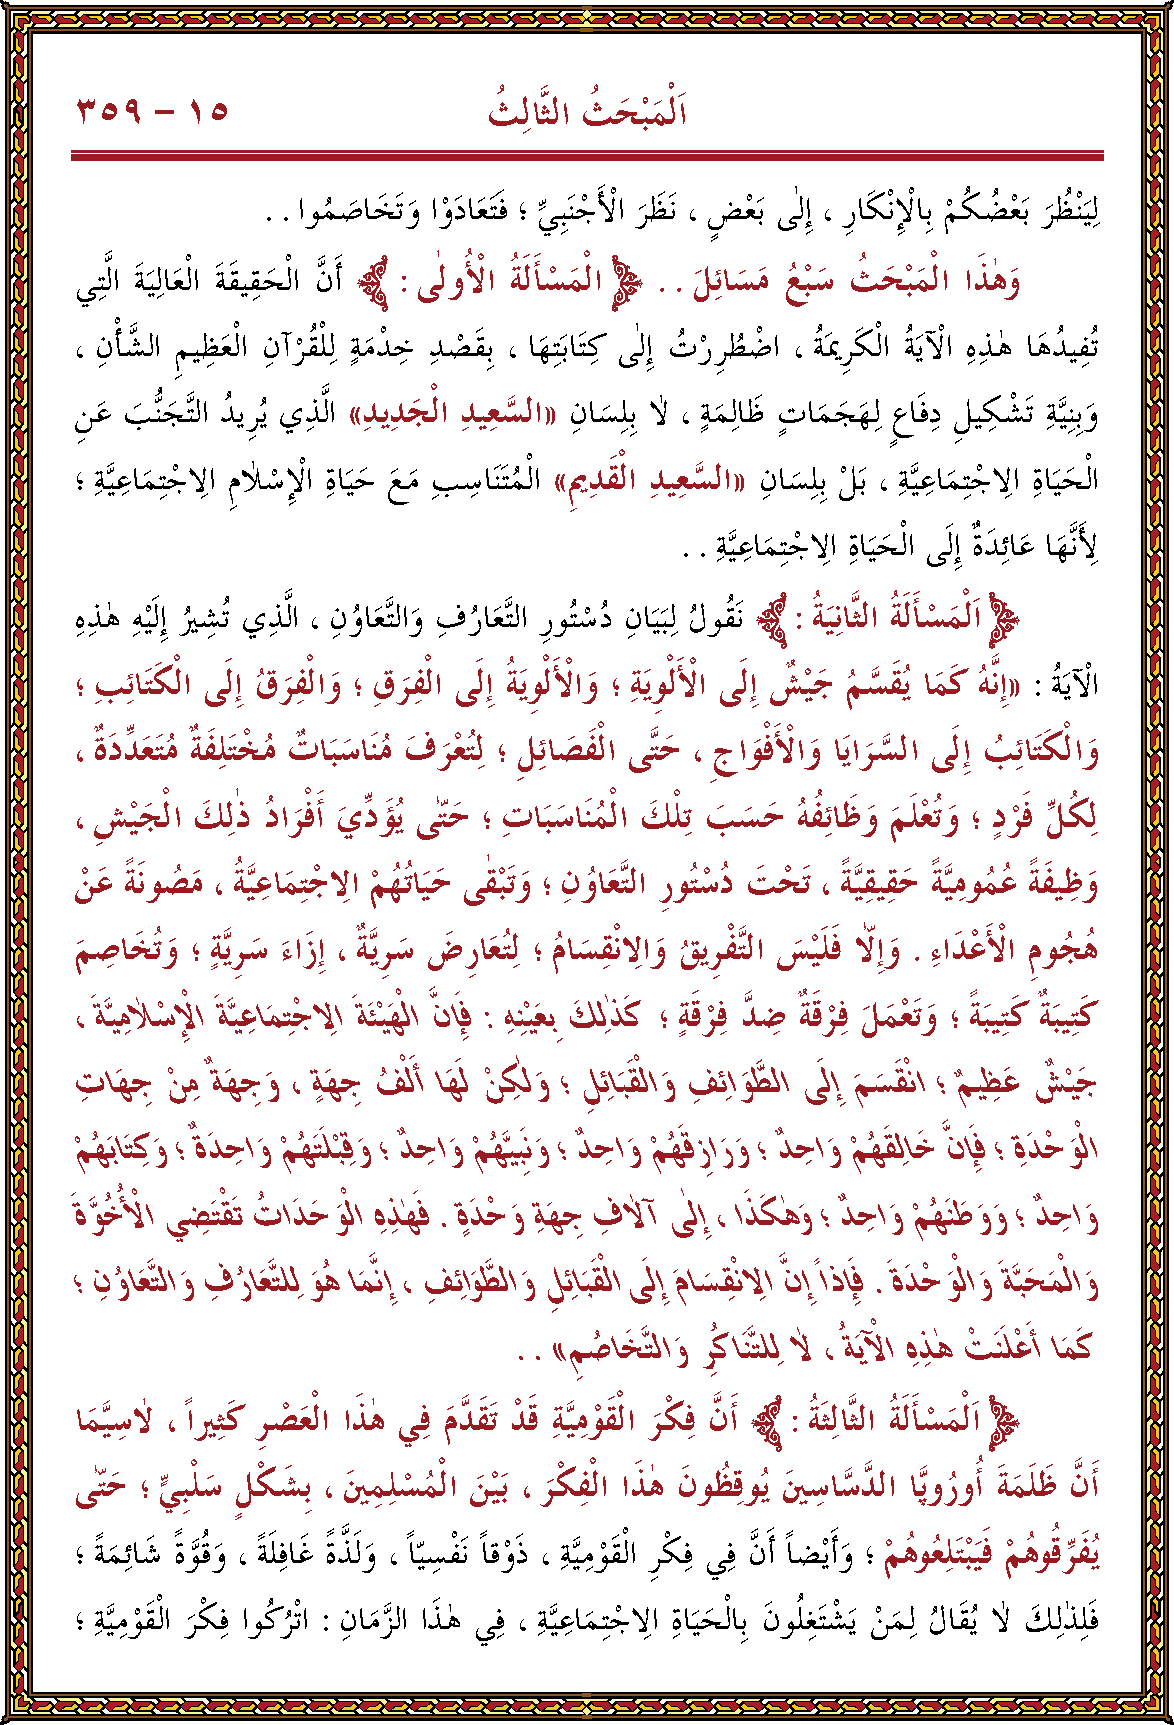 اَلْمَبْحَثُ الثَّالِثُ ١٥ – ٣٥٩
لِيَنْظُرَ بَعْضُكُمْ بِالْاِنْكَارِ ، اِلٰى بَعْضٍ ، نَظَرَ الْأَجْنَبِيِّ ؛ فَتَعَادَوْا وَتَخَاصَمُوا . .
وَهٰذَا الْمَبْحَثُ سَبْعُ مَسَائِلَ . . ﴿ الْمَسْأَلَةُ الْأُولٰى : ﴾ أَنَّ الْحَقِيقَةَ الْعَالِيَةَ الَّتِي
تُفِيدُهَا هٰذِهِ الْآيَةُ الْكَرِيمَةُ ، اضْطُرِرْتُ إِلٰى كِتَابَتِهَا ، بِقَصْدِ خِدْمَةٍ لِلْقُرْآنِ الْعَظِيمِ الشَّأْنِ ،
وَبِنِيَّةِ تَشْكِيلِ دِفَاعٍ لِهَجَمَاتٍ ظَالِمَةٍ ، لَا بِلِسَانِ «السَّعِيدِ الْجَدِيدِ» الَّذِي يُرِيدُ التَّجَنُّبَ عَنِ
الْحَيَاةِ الِاجْتِمَاعِيَّةِ ، بَلْ بِلِسَانِ «السَّعِيدِ الْقَدِيمِ» الْمُتَنَاسِبِ مَعَ حَيَاةِ الْإِسْلَامِ الِاجْتِمَاعِيَّةِ ؛
لِأَنَّهَا عَائِدَةٌ إِلَى الْحَيَاةِ الِاجْتِمَاعِيَّةِ . .
﴿ اَلْمَسْأَلَةُ الثَّانِيَةُ : ﴾ نَقُولُ لِبَيَانِ دُسْتُورِ التَّعَارُفِ وَالتَّعَاوُنِ ، الَّذِي تُشِيرُ إِلَيْهِ هٰذِهِ
الْآيَةُ : «إِنَّهُ كَمَا يُقَسَّمُ جَيْشٌ إِلَى الْأَلْوِيَةِ ؛ وَالْأَلْوِيَةُ إِلَى الْفِرَقِ ؛ وَالْفِرَقُ إِلَى الْكَتَائِبِ ؛
وَالْكَتَائِبُ إِلَى السَّرَايَا وَالْأَفْوَاجِ ، حَتَّى الْفَصَائِلِ ؛ لِتُعْرَفَ مُنَاسَبَاتٌ مُخْتَلِفَةٌ مُتَعَدِّدَةٌ ،
لِكُلِّ فَرْدٍ ؛ وَتُعْلَمَ وَظَائِفُهُ حَسَبَ تِلْكَ الْمُنَاسَبَاتِ ؛ حَتّٰى يُؤَدِّيَ أَفْرَادُ ذٰلِكَ الْجَيْشِ ،
وَظِيفَةً عُمُومِيَّةً حَقِيقِيَّةً ، تَحْتَ دُسْتُورِ التَّعَاوُنِ ؛ وَتَبْقٰى حَيَاتُهُمْ الِاجْتِمَاعِيَّةُ ، مَصُونَةً عَنْ
هُجُومِ الْأَعْدَاءِ . وَإِلَّا فَلَيْسَ التَّفْرِيقُ وَالِانْقِسَامُ ؛ لِتُعَارِضَ سَرِيَّةٌ ، إِزَاءَ سَرِيَّةٍ ؛ وَتُخَاصِمَ
كَتِيبَةٌ كَتِيبَةً ؛ وَتَعْمَلَ فِرْقَةٌ ضِدَّ فِرْقَةٍ ؛ كَذٰلِكَ بِعَيْنِهِ : فَإِنَّ الْهَيْئَةَ الِاجْتِمَاعِيَّةَ الْإِسْلَامِيَّةَ ،
جَيْشٌ عَظِيمٌ ؛ انْقَسَمَ إِلَى الطَّوَائِفِ وَالْقَبَائِلِ ؛ وَلٰكِنْ لَهَا أَلْفُ جِهَةٍ ، وَجِهَةٌ مِنْ جِهَاتِ
الْوَحْدَةِ ؛ فَإِنَّ خَالِقَهُمْ وَاحِدٌ ؛ وَرَازِقَهُمْ وَاحِدٌ ؛ وَنَبِيَّهُمْ وَاحِدٌ ؛ وَقِبْلَتَهُمْ وَاحِدَةٌ ؛ وَكِتَابَهُمْ
وَاحِدٌ ؛ وَوَطَنَهُمْ وَاحِدٌ ؛ وَهٰكَذَا ، إِلٰى آلَافِ جِهَةِ وَحْدَةٍ . فَهٰذِهِ الْوَحَدَاتُ تَقْتَضِي الْأُخُوَّةَ
وَالْمَحَبَّةَ وَالْوَحْدَةَ . فَإِذاً إِنَّ الِانْقِسَامَ إِلَى الْقَبَائِلِ وَالطَّوَائِفِ ، إِنَّمَا هُوَ لِلتَّعَارُفِ وَالتَّعَاوُنِ ؛
كَمَا أَعْلَنَتْ هٰذِهِ الْآيَةُ ، لَا لِلتَّنَاكُرِ وَالتَّخَاصُمِ» . .
﴿ اَلْمَسْأَلَةُ الثَّالِثَةُ : ﴾ أَنَّ فِكْرَ الْقَوْمِيَّةِ قَدْ تَقَدَّمَ فِي هٰذَا الْعَصْرِ كَثِيراً ، لَاسِيَّمَا
أَنَّ ظَلَمَةَ أُورُوپَّا الدَّسَّاسِينَ يُوقِظُونَ هٰذَا الْفِكْرَ ، بَيْنَ الْمُسْلِمِينَ ، بِشَكْلٍ سَلْبِيٍّ ؛ حَتّٰى
يُفَرِّقُوهُمْ فَيَبْتَلِعُوهُمْ ؛ وَأَيْضاً أَنَّ فِي فِكْرِ الْقَوْمِيَّةِ ، ذَوْقاً نَفْسِيّاً ، وَلَذَّةً غَافِلَةً ، وَقُوَّةً شَائِمَةً ؛
فَلِذٰلِكَ لَا يُقَالُ لِمَنْ يَشْتَغِلُونَ بِالْحَيَاةِ الِاجْتِمَاعِيَّةِ ، فِي هٰذَا الزَّمَانِ : اتْرُكُوا فِكْرَ الْقَوْمِيَّةِ ؛